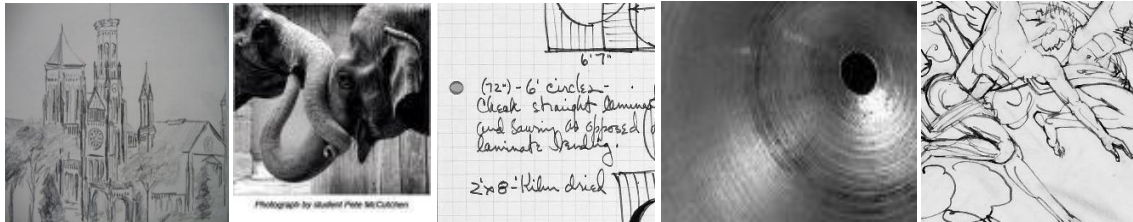 Photograph by student Pete McCutchen
6' 7"
(72") - 6' circles -
Check straight laminat
and sawing as opposed
laminate bending.
2"x8" Kiln dried